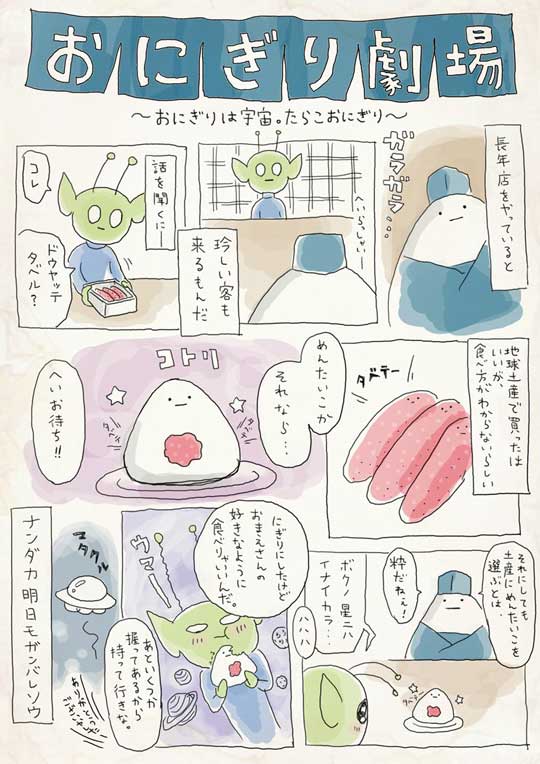 おにぎり劇場
〜おにぎりは宇宙。たらこおにぎり〜
長年店をやっていると
ガラガラ…
へいらっしゃい
珍しい客も
来るもんだ
話を聞くに―
コレ
ドウヤッテ
タベル?
地球土産で買ったは
いいが、
食べ方がわからないらしい
タベテー
めんたいこか
それなら…
コトリ
タベテ
タベテ
へいお待ち!!
それにしても
土産にめんたいこを
選ぶとは、
粋だねぇ!
ボクノ星ニハ
イナイカラ…
ハハハ
タベテ
にぎりにしたけど
おまえさんの
好きなように
食べりゃいいんだ。
ウマー
あといくつか
握ってあるから
持って行きな。
マタクル
ありがとう
ございました
ナンダカ明日モガンバレソウ